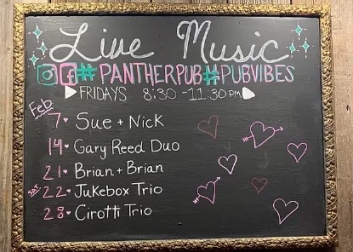 Live Music
#PANTHERPUB #PUBVIBES
FRIDAYS 8:30 - 11:30 PM
Feb
7 Sue + Nick
14 Gary Reed Duo
21 Brian + Brian
Sat 22 Jukebox Trio
28 Cirotti Trio